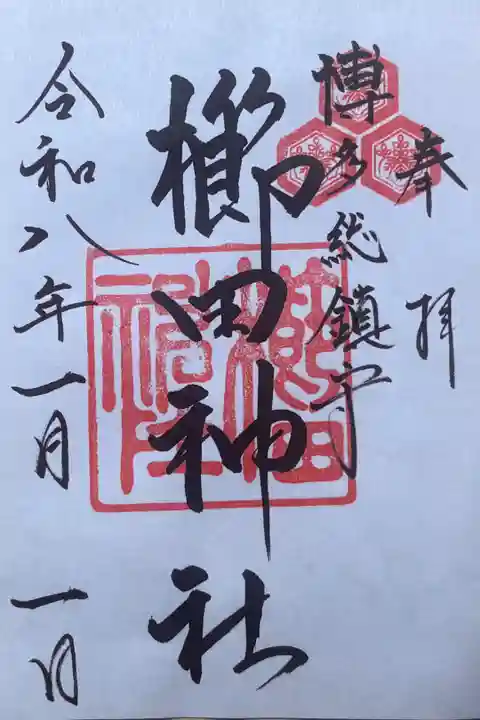 奉拝
博多総鎮守
櫛田神社
令和八年一月一日
櫛田
神社